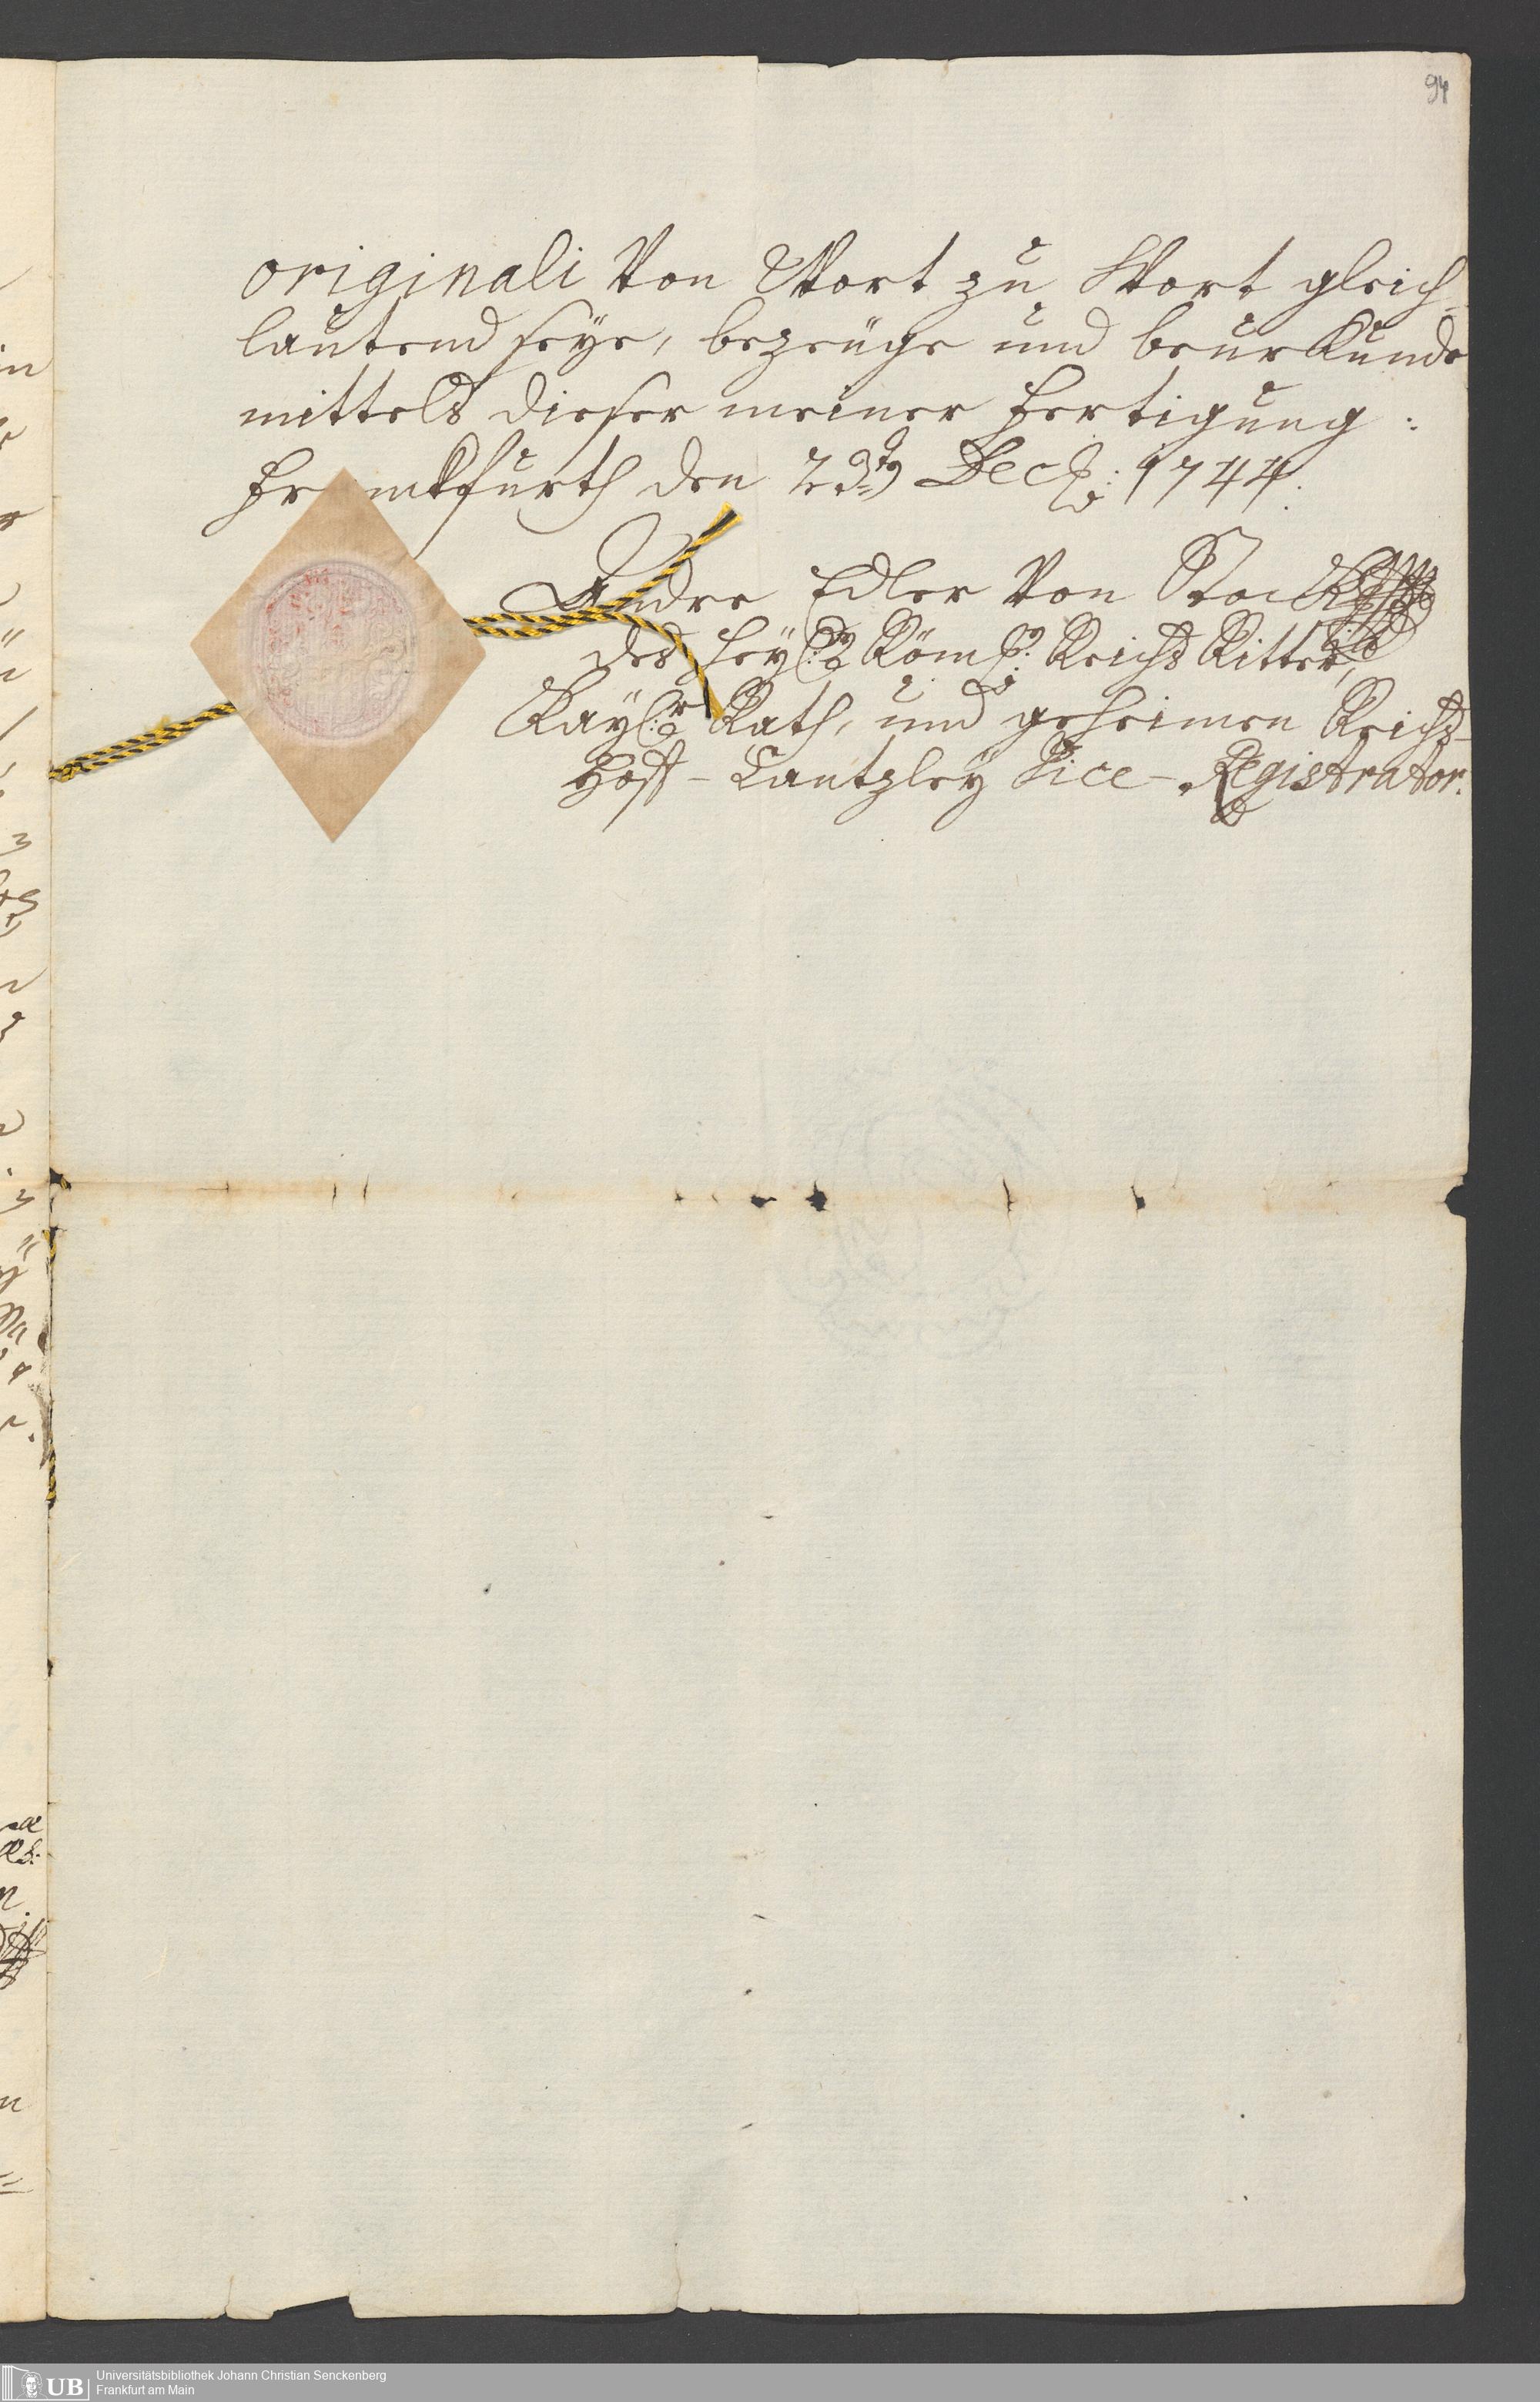 94
originali von Wort zu Wort gleich-
lautend seÿe, bezeüge und beurkunde
mittels dieser meiner Fertigung:
Franckfurth den Decb: 1744.
Andre Edler von Stock
des heÿl: Röm: Reichs Ritter,
Kaÿl: Rath, und geheimen Reichs-
Hoff-Cantzleÿ Vice-Registrator.
UB
Universitätsbibliothek Johann Christian Senckenberg
Frankfurt am Main